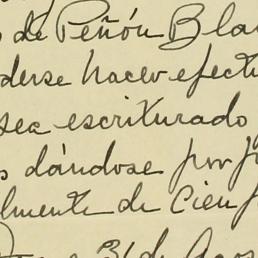 de Peñón Bla
derse hacer efectu
sea escriturado
s dándose por f
lmente de Cien
31 de Agos